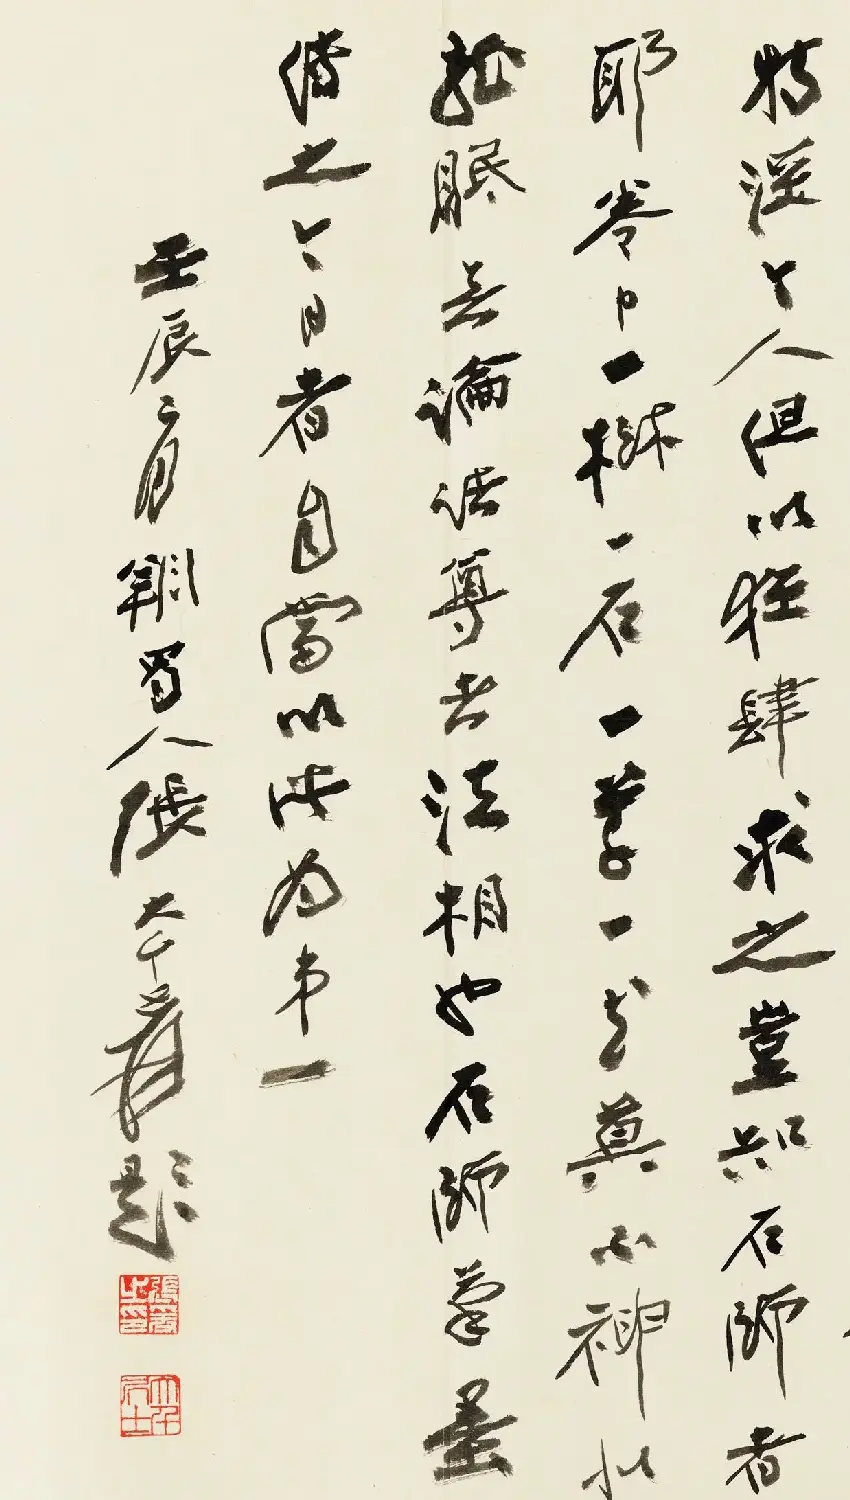 人但以狂肆求之豈知石師者
耶卷中一樹一石一草一花莫不神似
龍眠無論諸尊者法相也石師筆墨
傳之今日者自當以此為第一
壬辰二月朔蜀人張大千爰題
張爰之印
大千居士